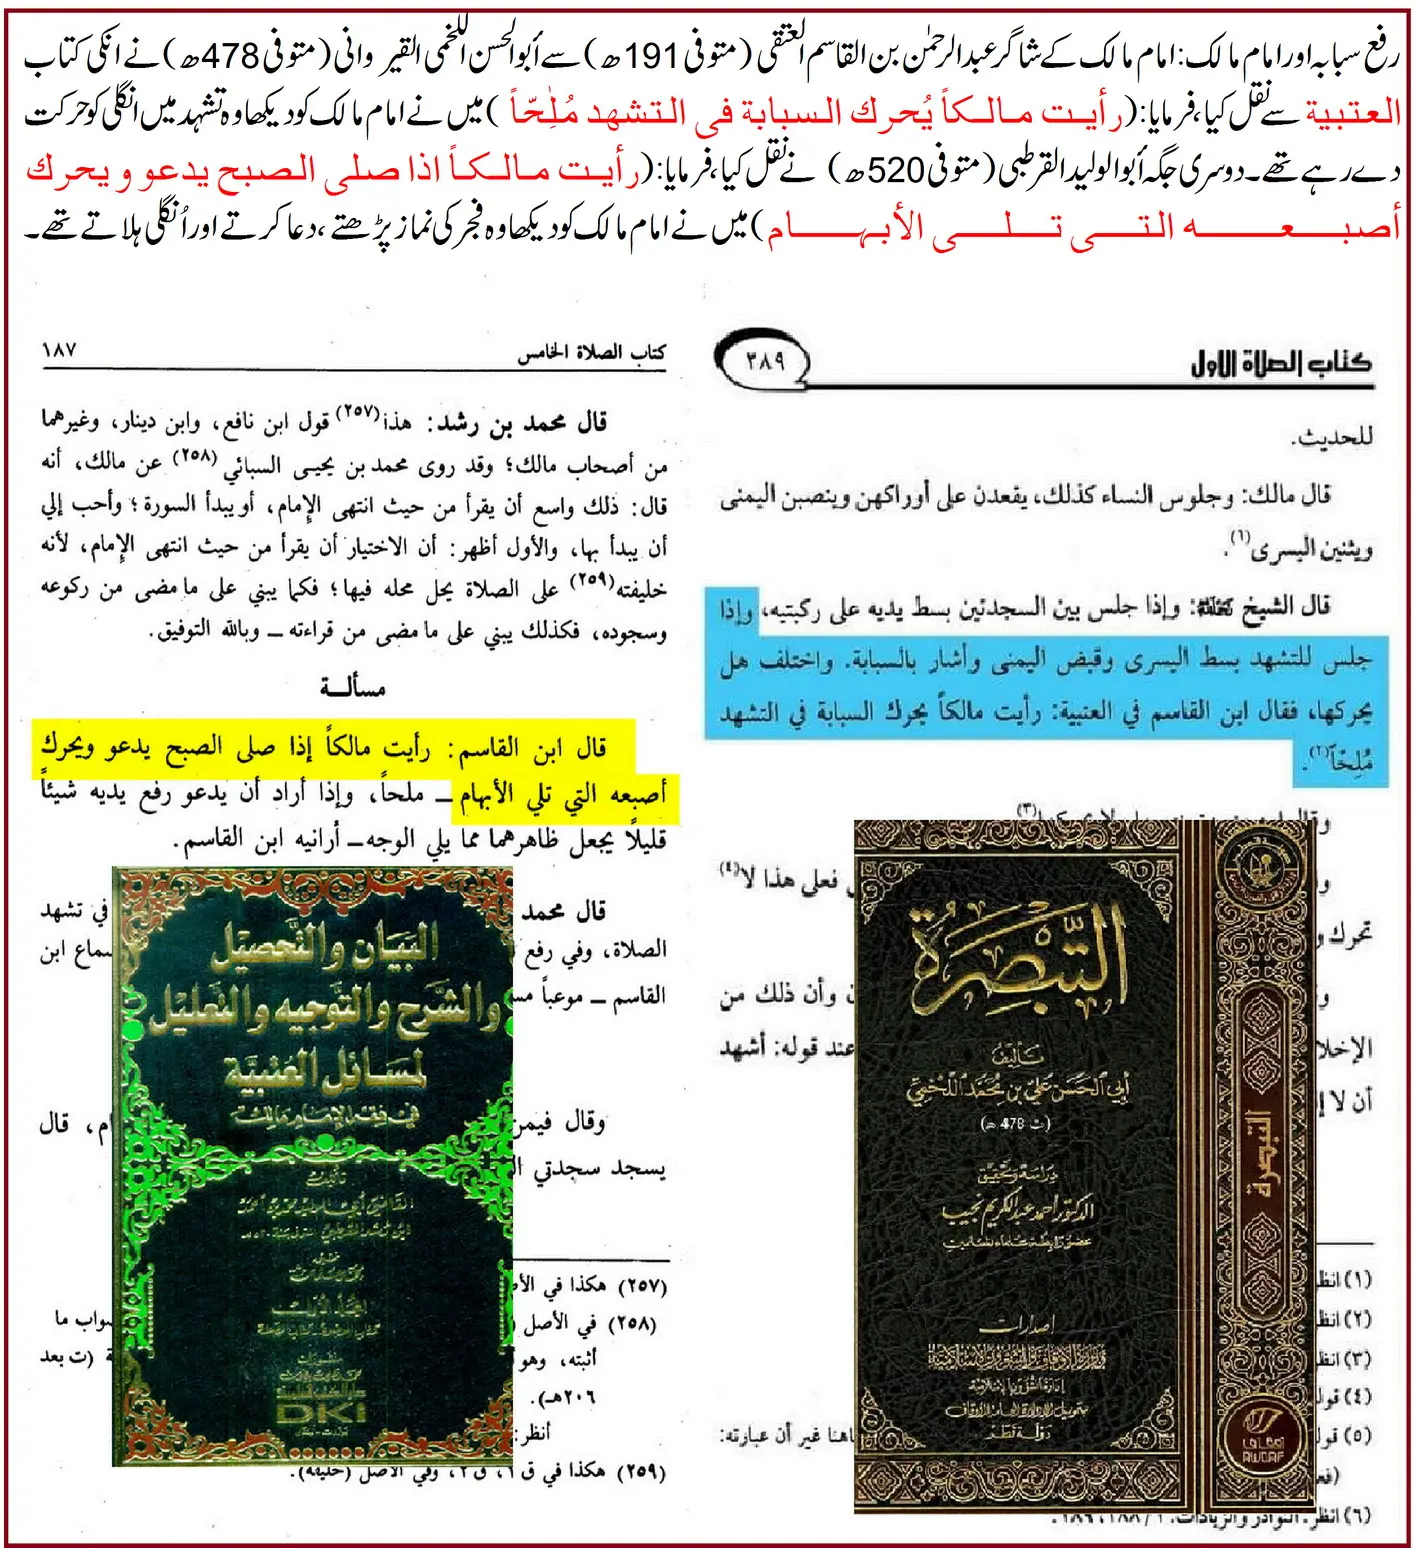 رفع سبابہ اور امام مالک: امام مالک کے شاگر عبدالرحمٰن بن القاسم العتقی (متوفی 191ھ) سے أبو الحسن اللخمی القیروانی (متوفی 478ھ) نے انکی کتاب
العتبية سے نقل کیا، فرمایا: (رأيت مالكاً يُحرك السبابة فى التشهد مُلِحّاً) میں نے امام مالک کو دیکھا وہ تشہد میں انگلی کو حرکت
دے رہے تھے۔ دوسری جگہ أبو الولید القرطبی (متوفی 520ھ) نے نقل کیا، فرمایا: (رأيت مالكاً اذا صلى الصبح يدعو و يحرك
أصبعه التى تلى الأبهام) میں نے امام مالک کو دیکھا وہ فجر کی نماز پڑھتے، دعا کرتے اور اُنگلی ہلاتے تھے۔
كتاب الصلاة الأول
٣٨٩
للحديث.
قال مالك: وجلوس النساء كذلك، يقعدن على أوراكهن وينصبن اليمنى
ويثنين اليسرى(١).
قال الشيخ رَحِمَهُ اللهُ: وإذا جلس بين السجدتين بسط يديه على ركبتيه، وإذا
جلس للتشهد بسط اليسرى وقبض اليمنى وأشار بالسبابة. واختلف هل
يحركها، فقال ابن القاسم في العتبية: رأيت مالكاً يحرك السبابة في التشهد
مُلِحّاً(٢).
فعلى هذا لا(٤)
تحرك
وأن ذلك من
عند قوله: أشهد
أن لا
(١) انظر
(٢) انظر
(٣) انظر
(٤) قوله
(٥) قوله
هنا غير أن عبارته:
(٦) انظر: النوادر والزيادات: ١/ ١٨٨، ١٨٩.
التَّبصِرَة
تأليف
أبي الحسن علي بن محمد اللخمي
(ت 478 هـ)
دراسة وتحقيق
الدكتور أحمد عبد الكريم نجيب
إصدارات
وزارة الأوقاف والشؤون الإسلامية
إدارة الشؤون الإسلامية
بتمويل الإدارة العامة للأوقاف
دولة قطر
التبصرة
أوقاف
AWQAF
كتاب الصلاة الخامس
١٨٧
قال محمد بن رشد: هذا(٢٥٧) قول ابن نافع، وابن دينار، وغيرهما
من أصحاب مالك؛ وقد روى محمد بن يحيى السبائي(٢٥٨) عن مالك، أنه
قال: ذلك واسع أن يقرأ من حيث انتهى الإمام، أو يبدأ السورة؛ وأحب إلي
أن يبدأ بها، والأول أظهر: أن الاختيار أن يقرأ من حيث انتهى الإمام، لأنه
خليفته(٢٥٩) على الصلاة يحل محله فيها؛ فكما يبني على ما مضى من ركوعه
وسجوده، فكذلك يبني على ما مضى من قراءته ــ وبالله التوفيق.
مسألة
قال ابن القاسم: رأيت مالكاً إذا صلى الصبح يدعو ويحرك
أصبعه التي تلي الأبهام ــ ملحاً، وإذا أراد أن يدعو رفع يديه شيئاً
قليلاً يجعل ظاهرهما مما يلي الوجه ــ أرانيه ابن القاسم.
قال محمد في تشهد
الصلاة، وفي رفع سماع ابن
القاسم ــ موعباً
وقال فيمن قال
يسجد سجدتي
(٢٥٧) هكذا في
(٢٥٨) في الأصل
أثبته، وهو (ت بعد
٢٠٦هـ).
أنظر:
(٢٥٩) هكذا في ق ١، ق ٢، وفي الأصل (خليفة).
البيان والتحصيل
والشرح والتوجيه والتعليل
لمسائل العتبية
في فقه الإمام مالك
تأليف
DKI